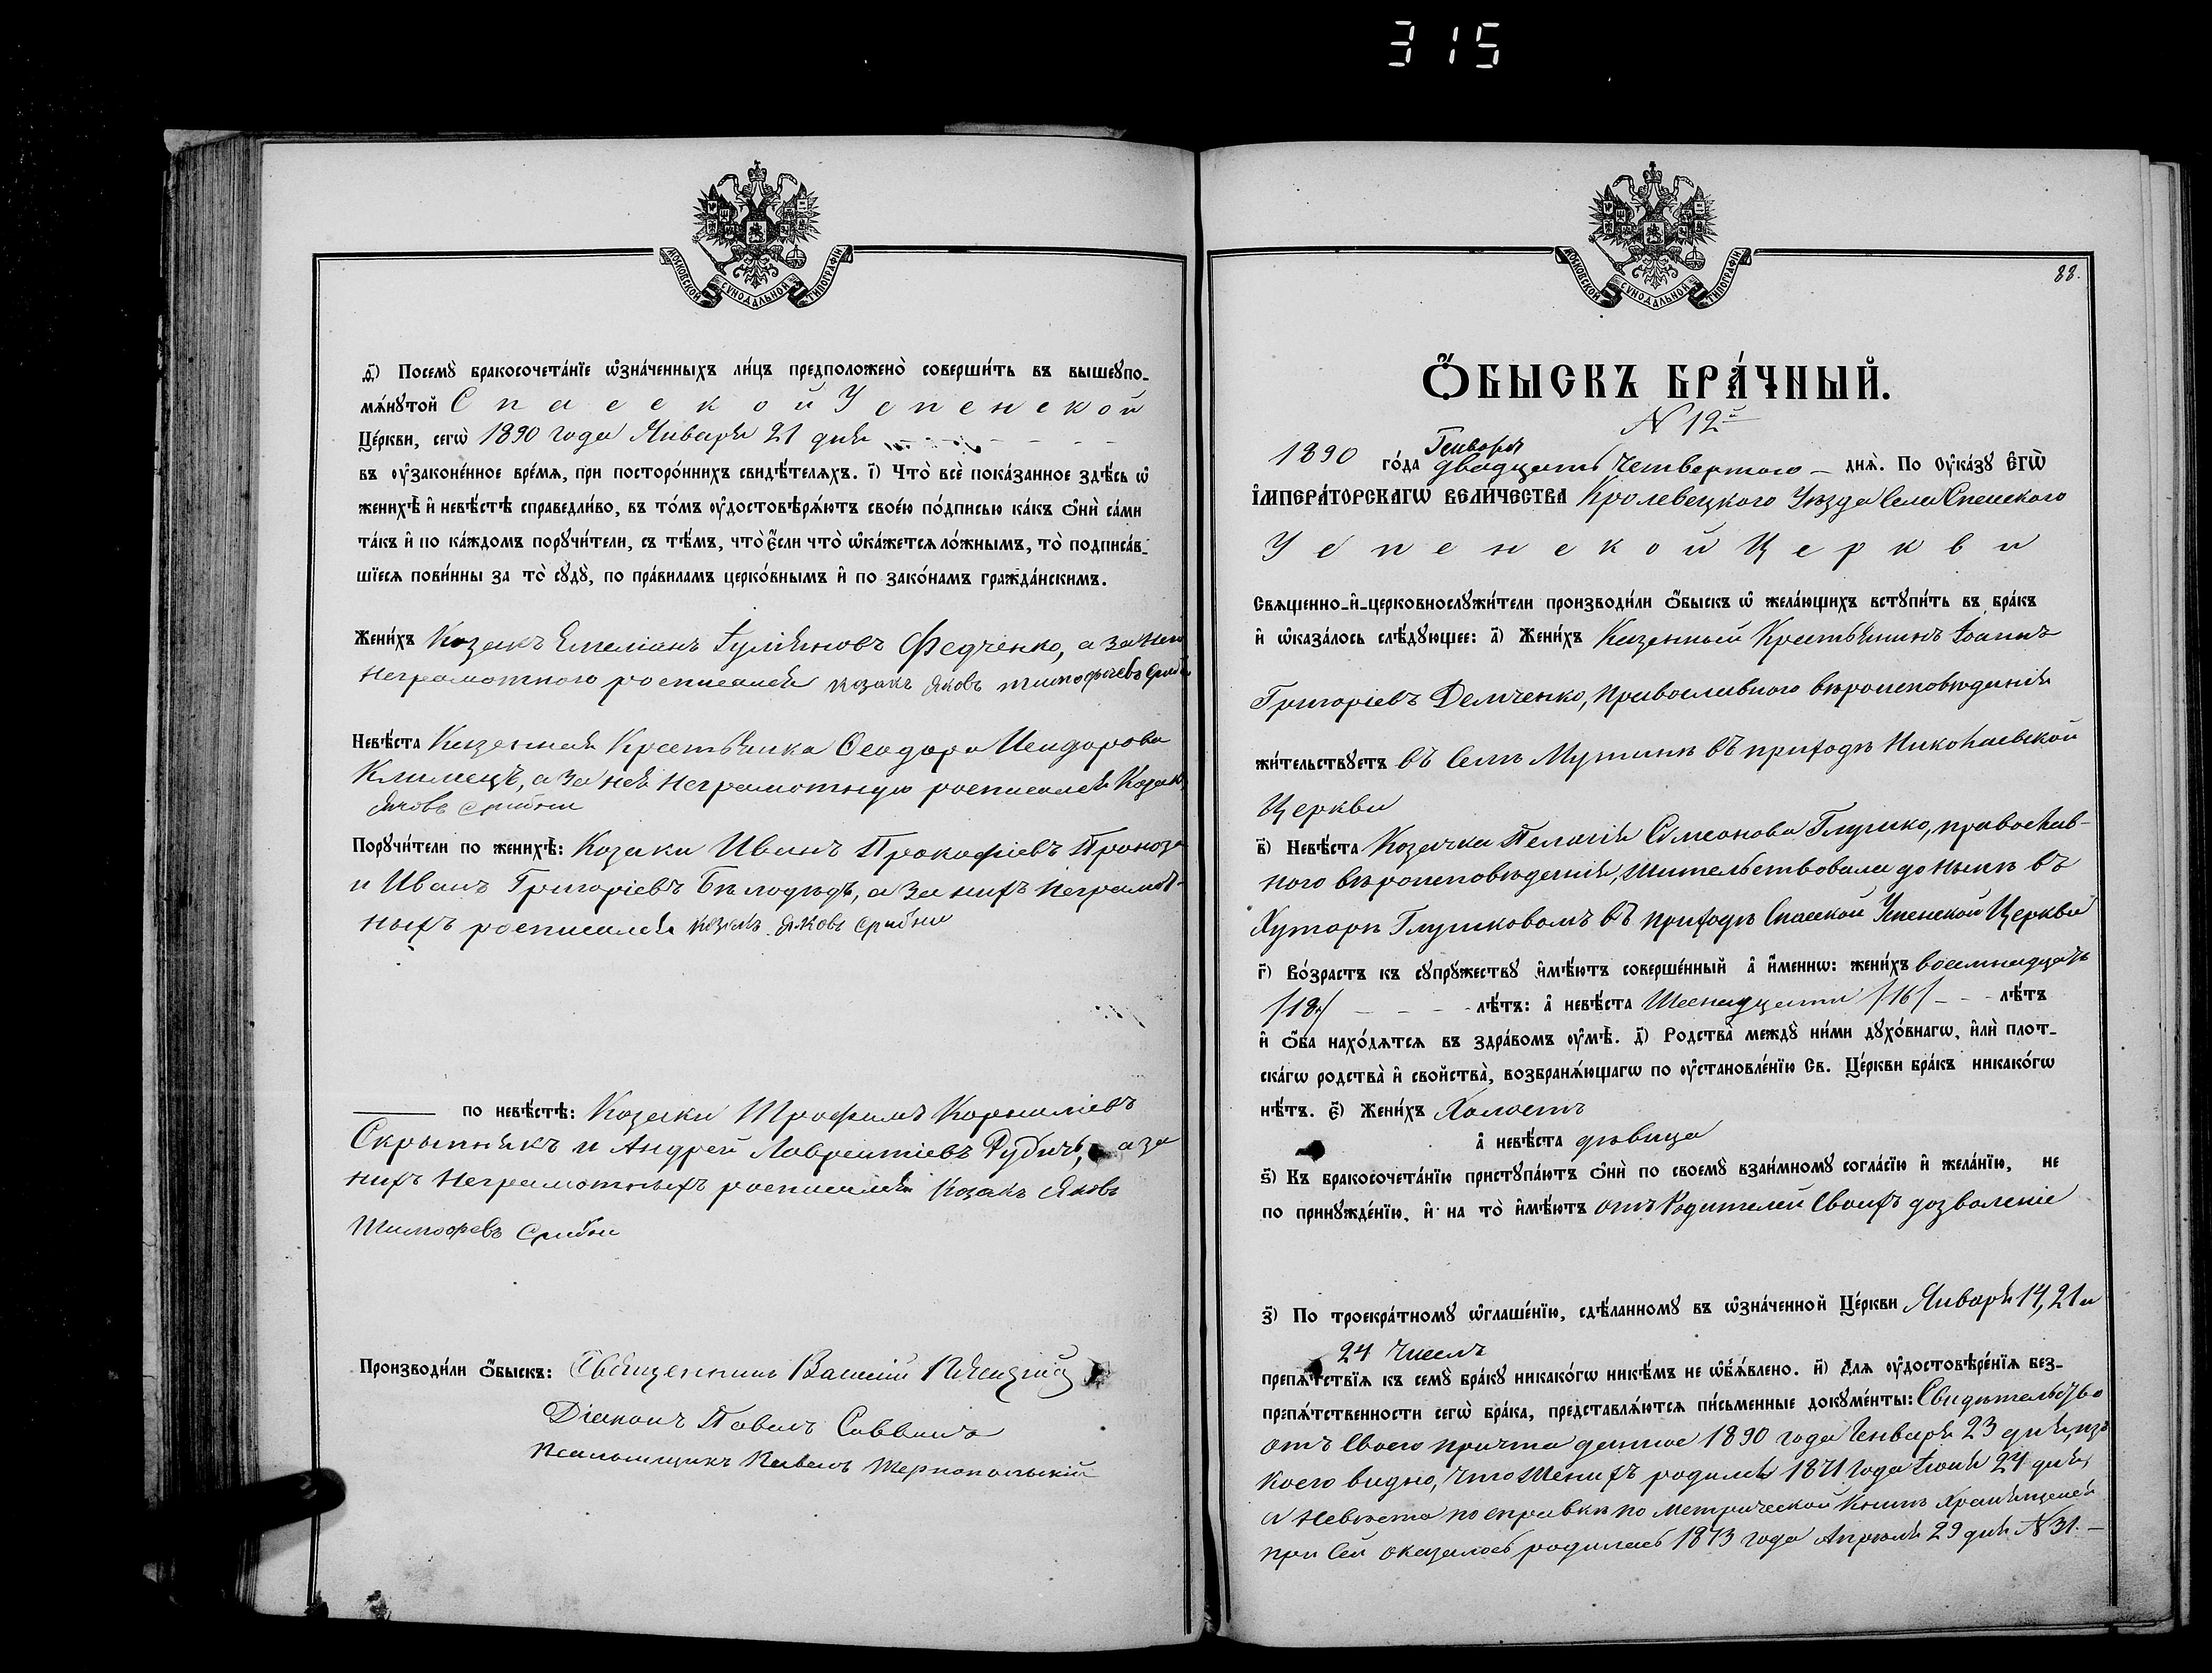 315
МОСКОВСКОЙ СУНОДАЛЬНОЙ ТИПОГРАФІИ
ѳ҃) Посемꙋ̀ бракосочета́нїе ѡ҆зна́ченныхъ ли́цъ предположено̀ соверши́ть въ вышеꙋпо-
мѧ́нꙋтой Спасской Успенской
Це́ркви, сегѡ̀ 1890 года Января 21 дня
въ ᲂу҆законе́нное вре́мѧ, при посторо́ннихъ свидѣ́телѧхъ. і҃) Что̀ всѐ пока́занное здѣ́сь ѡ҆
женихѣ̀ и҆ невѣ́стѣ справедли́во, въ то́мъ ᲂу҆достовѣрѧ́ютъ свое́ю по́дписью ка́къ ѻ҆нѝ са́ми
та́къ и҆ по ка́ждомъ порꙋчи́тели, съ тѣ́мъ, что̀ є҆́сли что̀ ѡ҆ка́жетсѧ ло́жнымъ, то̀ подписа́в-
шїесѧ пови́нны за то̀ сꙋдꙋ̀, по пра́виламъ церко́внымъ и҆ по зако́намъ гражда́нскимъ.
Жени́хъ Козакъ Емеліанъ Іуліяновъ Федченко, а за него
неграмотного росписался козакъ Яковъ тимофѣевъ
Невѣ́ста Казенная Крестьянка Ѳеодора Исидорова
Климецъ, а за нея неграмотную росписался Козакъ
Яковъ Срибни
Порꙋчи́тели по женихѣ̀: Козаки Иванъ Прокофіевъ Проноза
и Иванъ Григоріевъ Бѣлодѣдъ, а за нихъ неграмот-
ныхъ росписался козакъ Яковъ Срибни
по невѣ́стѣ: Козаки Трофимъ Корниліевъ
Скрыпникъ и Андрей Лаврентіевъ Рубичъ, а за
нихъ неграмотныхъ росписался Козакъ Яковъ
Тимофевъ Срибни
Производи́ли ѻ҆́быскъ: Священникъ Василій
Діаконъ Павелъ Саввинъ
Псаломщикъ Павелъ Тернопольскій
МОСКОВСКОЙ СУНОДАЛЬНОЙ ТИПОГРАФІИ
88.
Ѻ҆́БЫСКЪ БРА́ЧНЫЙ.
N 12й
Генваря
1890 го́да двадцать четвертого – днѧ̀. По ᲂу҆ка́зꙋ Є҆гѡ̀
І҆МПЕРА́ТОРСКАГѠ ВЕЛИ́ЧЕСТВА Кролевецкого Уѣзда Села Спасского
Успенской Церкви
Свѧщенно-и҆-церковнослꙋжи́тели производи́ли ѻ҆́быскъ ѡ҆ жела́ющихъ встꙋпи́ть въ бра́къ
и҆ ѡ҆каза́лось слѣ́дꙋющее: а҃) Жени́хъ Казенный Крестьянинъ Іоаннъ
Григоріевъ Демченко, православного вѣроисповѣданія
жи́тельствꙋетъ въ селѣ Мутинѣ въ приходѣ Николаевской
Церкви
в҃) Невѣ́ста Козачка Пелагія Симеонова Глушко, православ-
ного вѣроисповѣданія, жительствовала до нынѣ въ
Хуторѣ Глушковомъ въ приходѣ Спасской Успенской Церкви
г҃) Во́зрастъ къ сꙋпрꙋжествꙋ и҆мѣ́ютъ соверше́нный а҆ и҆́меннѡ: жени́хъ восемнадцать
/18/ – – – лѣ́тъ: а҆ невѣ́ста Шеснадцати /16/ – – лѣ́тъ
и҆ ѻ҆́ба нахо́дѧтсѧ въ здра́вомъ ᲂу҆мѣ̀. д҃) Родства̀ междꙋ̀ ни́ми дꙋхо́внагѡ, и҆лѝ плот-
ска́гѡ родства̀ и҆ свойства̀, возбранѧ́ющагѡ по ᲂу҆становле́нїю Св. Це́ркви бра́къ никако́гѡ
нѣ́тъ. є҃) Жени́хъ Холостъ
а҆ невѣ́ста дѣвица
ѕ҃) Къ бракосочета́нїю пристꙋпа́ютъ ѻ҆нѝ по своемꙋ̀ взаи́мномꙋ согла́сїю и҆ жела́нїю, не
по принꙋжде́нїю, и҆ на то̀ и҆мѣ́ютъ отъ Родителей Своихъ дозволеніе
з҃) По троекра́тномꙋ ѡ҆глаше́нїю, сдѣ́ланномꙋ въ ѡ҆зна́ченной Це́ркви Января 14, 21 и
24 чиселъ
препѧ́тствїѧ къ семꙋ̀ бра́кꙋ никако́гѡ никѣ́мъ не ѡ҆б̾ѧ́влено. и҃) Длѧ ᲂу҆достовѣре́нїѧ без-
препѧ́тственности сегѡ̀ бра́ка, представлѧ́ютсѧ пи́сьменные докꙋме́нты: Свидѣтельство
отъ своего причта данное 1890 года Генваря 23 дня, изъ
коего видно, что Женихъ родился 1871 года Іюня 24 дня,
а Невѣста по справкѣ по метрической Книгѣ Хранящейся
при сей оказалось родилась 1873 года Апрѣля 29 дня N 31. –